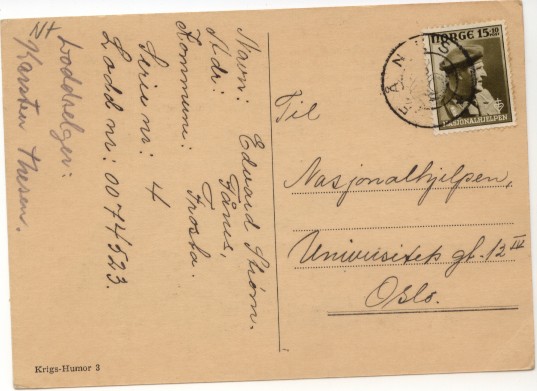 Navn: Edvard Strøm.
Adr: Fånes,
Kommune: Frosta.
Serie nr: 4
Lodd nr: 0074523.
Loddselger:
Karsten Thesen.
NORGE 15+10
NASJONALHJELPEN
Til
Nasjonalhjelpen,
Universitets gt. 12 III
Oslo.
Krigs-Humor 3